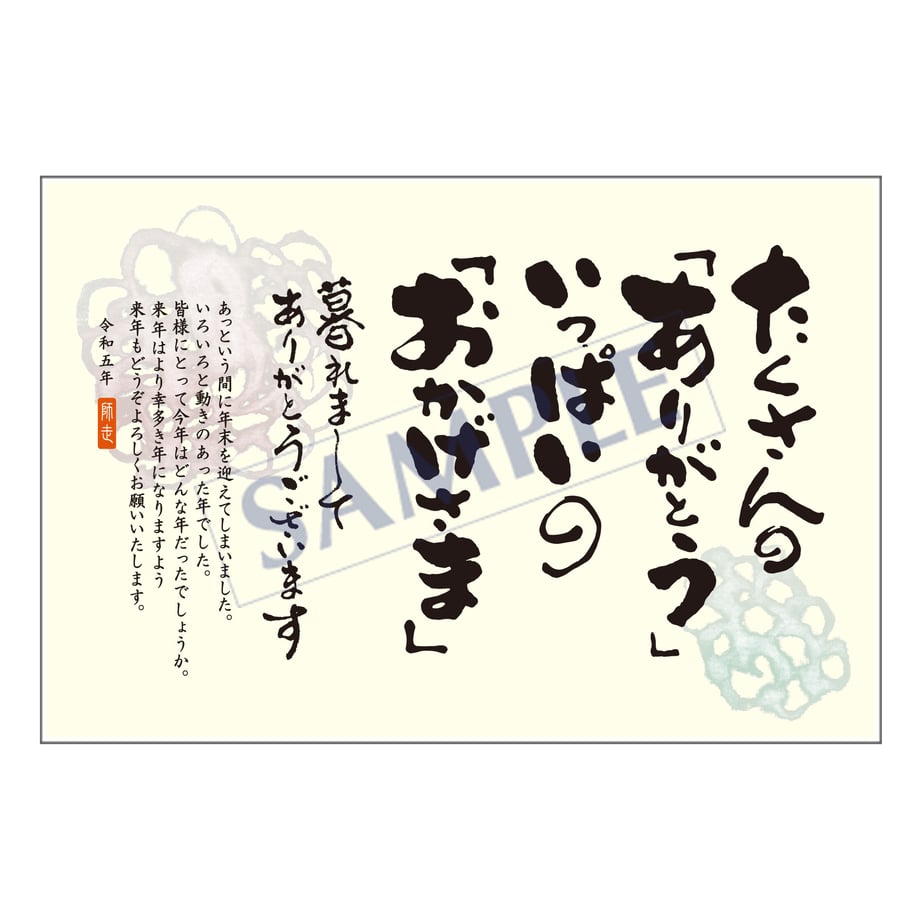 たくさんの
「ありがとう」
いっぱいの
「おかげさま」
暮れまして
ありがとうございます
あっという間に年末を迎えてしまいました。
いろいろと動きのあった年でした。
皆様にとって今年はどんな年だったでしょうか。
来年はより幸多き年になりますよう
来年もどうぞよろしくお願いいたします。
令和五年
師走
SAMPLE